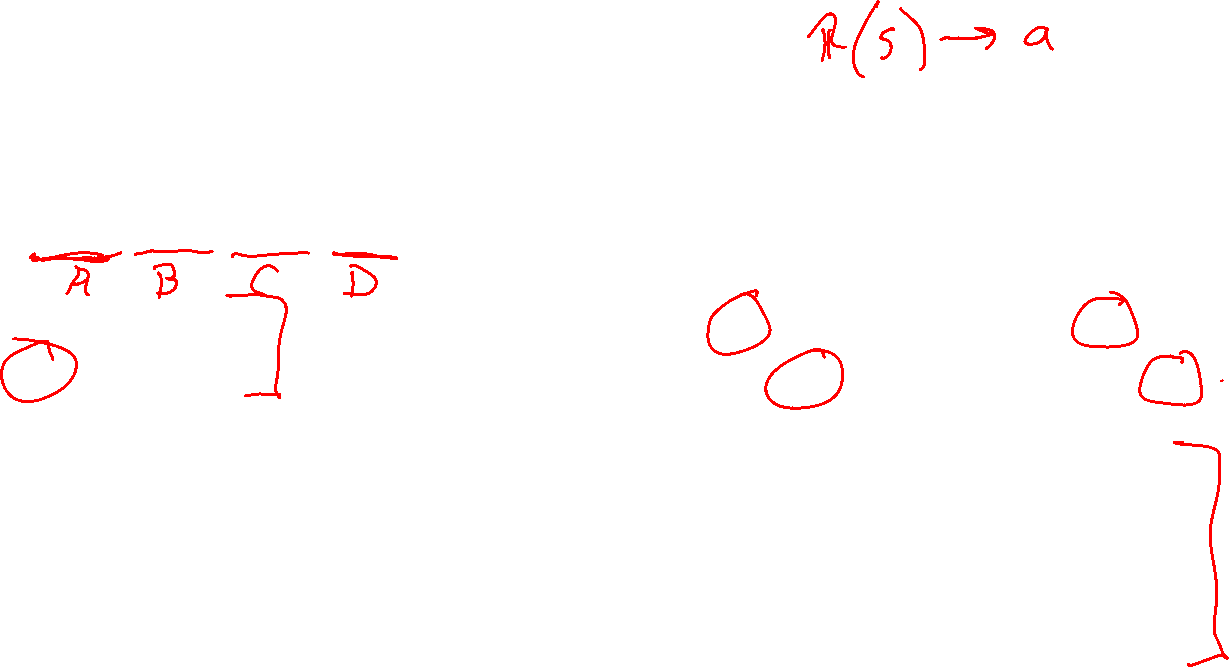 π(s) → a
A B C D